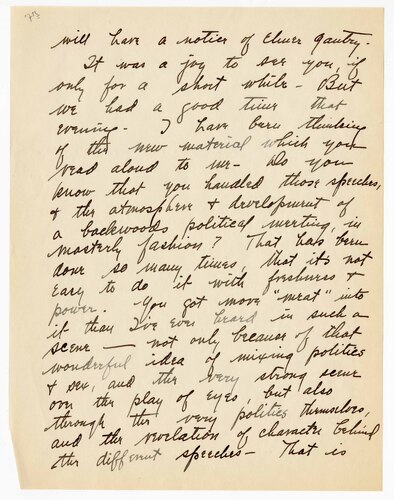 73
will have a notice of Elmer Gantry.
It was a joy to see you, if
only for a short while - But
we had a good time that
evening. I have been thinking
of the new material which you
read aloud to me - Do you
know that you handled those speeches,
& the atmosphere & development of
a backwoods political meeting, in
masterly fashion? That has been
done so many times, that it's not
easy to do it with freshness &
power. You got more "meat" into
it than I've ever heard in such a
scene — not only because of that
wonderful idea of mixing politics
& sex, and the very strong scene
over the play of eyes, but also
through the very politics themselves,
and the revelation of character behind
the different speeches - That is